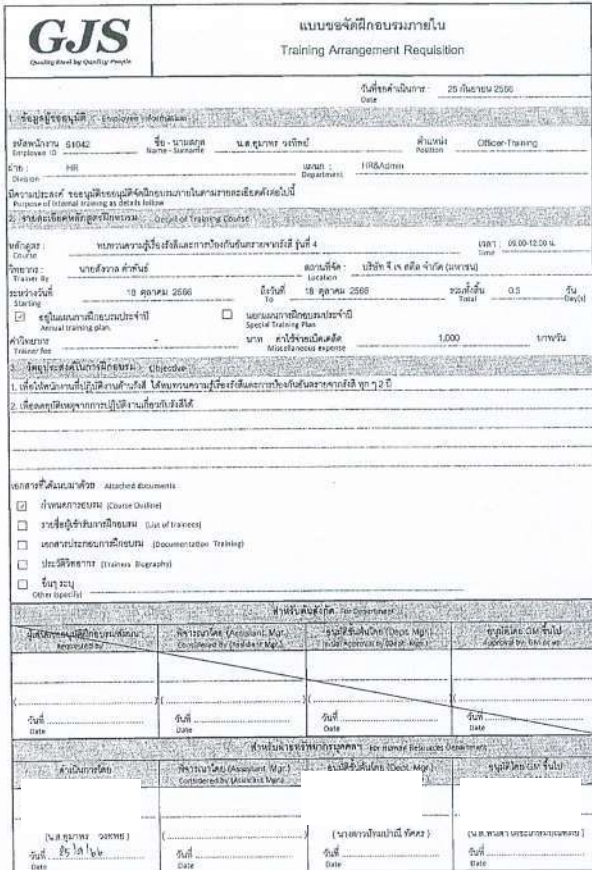 GJS
Quality Steel by Quality People
แบบขอจัดฝึกอบรมภายใน
Training Arrangement Requisition
วันที่ขอดำเนินการ : 25 กันยายน 2566
Date
1. ข้อมูลผู้ขออนุมัติ : Employee Information
รหัสพนักงาน 51042 ชื่อ - นามสกุล น.ส.ยุมาพร วงทิพย์ ตำแหน่ง Officer-Training
Employee ID Name - Surname Position
ฝ่าย : HR แผนก : HR&Admin
Division Department
มีความประสงค์ ขออนุมัติขออนุมัติจัดฝึกอบรมภายในตามรายละเอียดดังต่อไปนี้
Purpose of internal training as details follow
2. รายละเอียดหลักสูตรฝึกอบรม : Detail of Training Course
หลักสูตร : ทบทวนความรู้เรื่องรังสีและการป้องกันอันตรายจากรังสี รุ่นที่ 4 เวลา : 09.00-12.00 น.
Course Time
วิทยากร : นายสังวาล คำพันธ์ สถานที่จัด : บริษัท จี เจ สตีล จำกัด (มหาชน)
Trainer By Location
ระหว่างวันที่ 18 ตุลาคม 2566 ถึงวันที่ 18 ตุลาคม 2566 รวมทั้งสิ้น 0.5 วัน
Starting To Total Day(s)
อยู่ในแผนการฝึกอบรมประจำปี นอกแผนการฝึกอบรมประจำปี
Annual training plan Special Training Plan
ค่าวิทยากร - บาท ค่าใช้จ่ายเบ็ดเตล็ด 1,000 บาท/วัน
Trainer fee Miscellaneous expense
3. วัตถุประสงค์ในการฝึกอบรม : Objective
1. เพื่อให้พนักงานที่ปฏิบัติงานด้านรังสี ได้ทบทวนความรู้เรื่องรังสีและการป้องกันอันตรายจากรังสี ทุก ๆ 2 ปี
2. เพื่อลดอุบัติเหตุจากการปฏิบัติงานเกี่ยวกับรังสีได้
เอกสารที่ได้แนบมาด้วย Attached documents
กำหนดการอบรม (Course Outline)
รายชื่อผู้เข้ารับการฝึกอบรม (List of trainees)
เอกสารประกอบการฝึกอบรม (Documentation Training)
ประวัติวิทยากร (Trainers Biography)
อื่นๆ ระบุ
Other (specify)
สำหรับต้นสังกัด For Department
พิจารณาโดย (Assistant Mgr.) อนุมัติขั้นต้นโดย (Dept. Mgr.) อนุมัติโดย GM ขึ้นไป
Requested by Considered by (Assistant Mgr.) Initial Approval by (Dept. Mgr.) Approval by GM or up
วันที่ วันที่ วันที่ วันที่
Date Date Date Date
สำหรับฝ่ายทรัพยากรบุคคลฯ For Human Resources Department
ดำเนินการโดย พิจารณาโดย (Assistant Mgr.) อนุมัติขั้นต้นโดย (Dept. Mgr.) อนุมัติโดย GM ขึ้นไป
Considered by (Assistant Mgr.)
(น.ส.ยุมาพร วงทิพย์)
วันที่ วันที่ วันที่ วันที่
Date Date Date Date